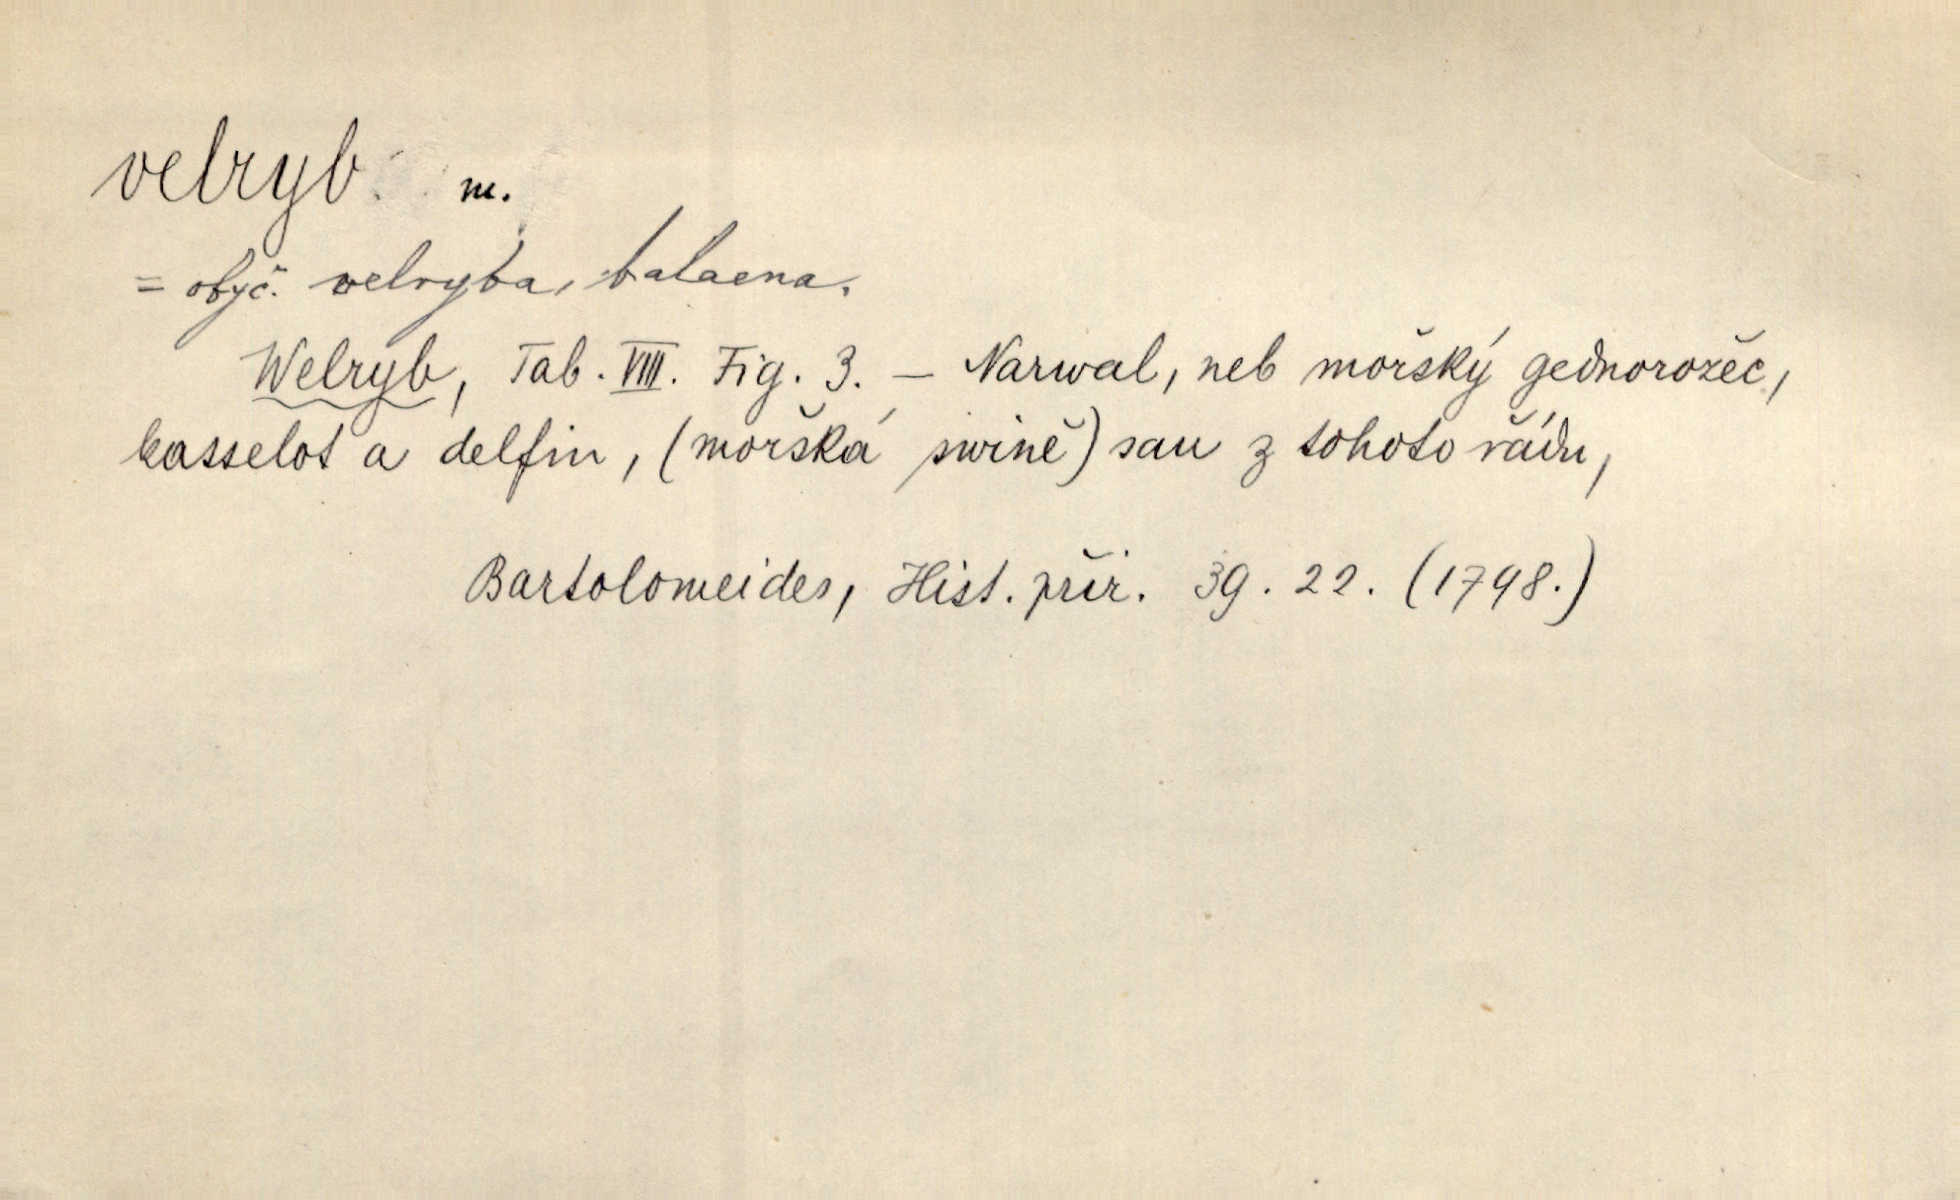 velryb m.
= obyč. welryba, balaena.
Welryb, Tab. VIII. Fig. 3. — Narwal, neb mořský gednorozěc,
kasselot a delfin, (mořská swině) sau z tohoto řádu,
Bartolomeides, Hist. přir. 39. 22. (1798.)